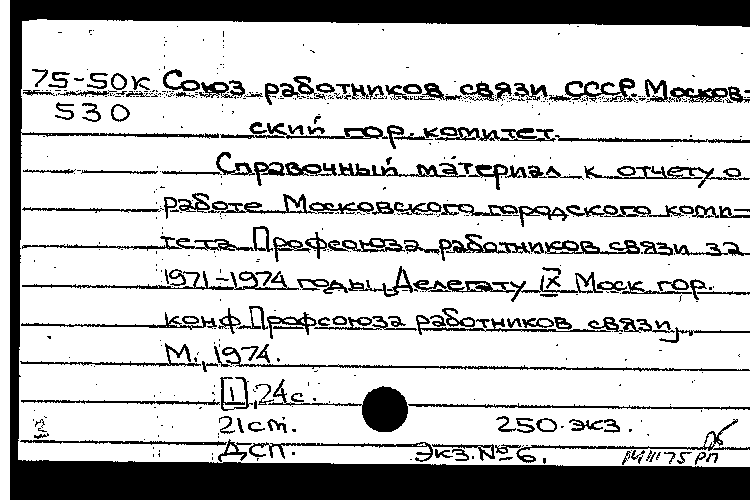 75-50К Союз работников связи СССР. Москов-
530
ский гор. комитет.
Справочный материал к отчету о
работе Московского городского коми-
тета Профсоюза работников связи за
1971-1974 годы „Делегату IX Моск гор.
конф Профсоюза работников связи„.
М., 1974.
[1], 24с.
21см. 250 экз.
ДСП. Экз. №6.